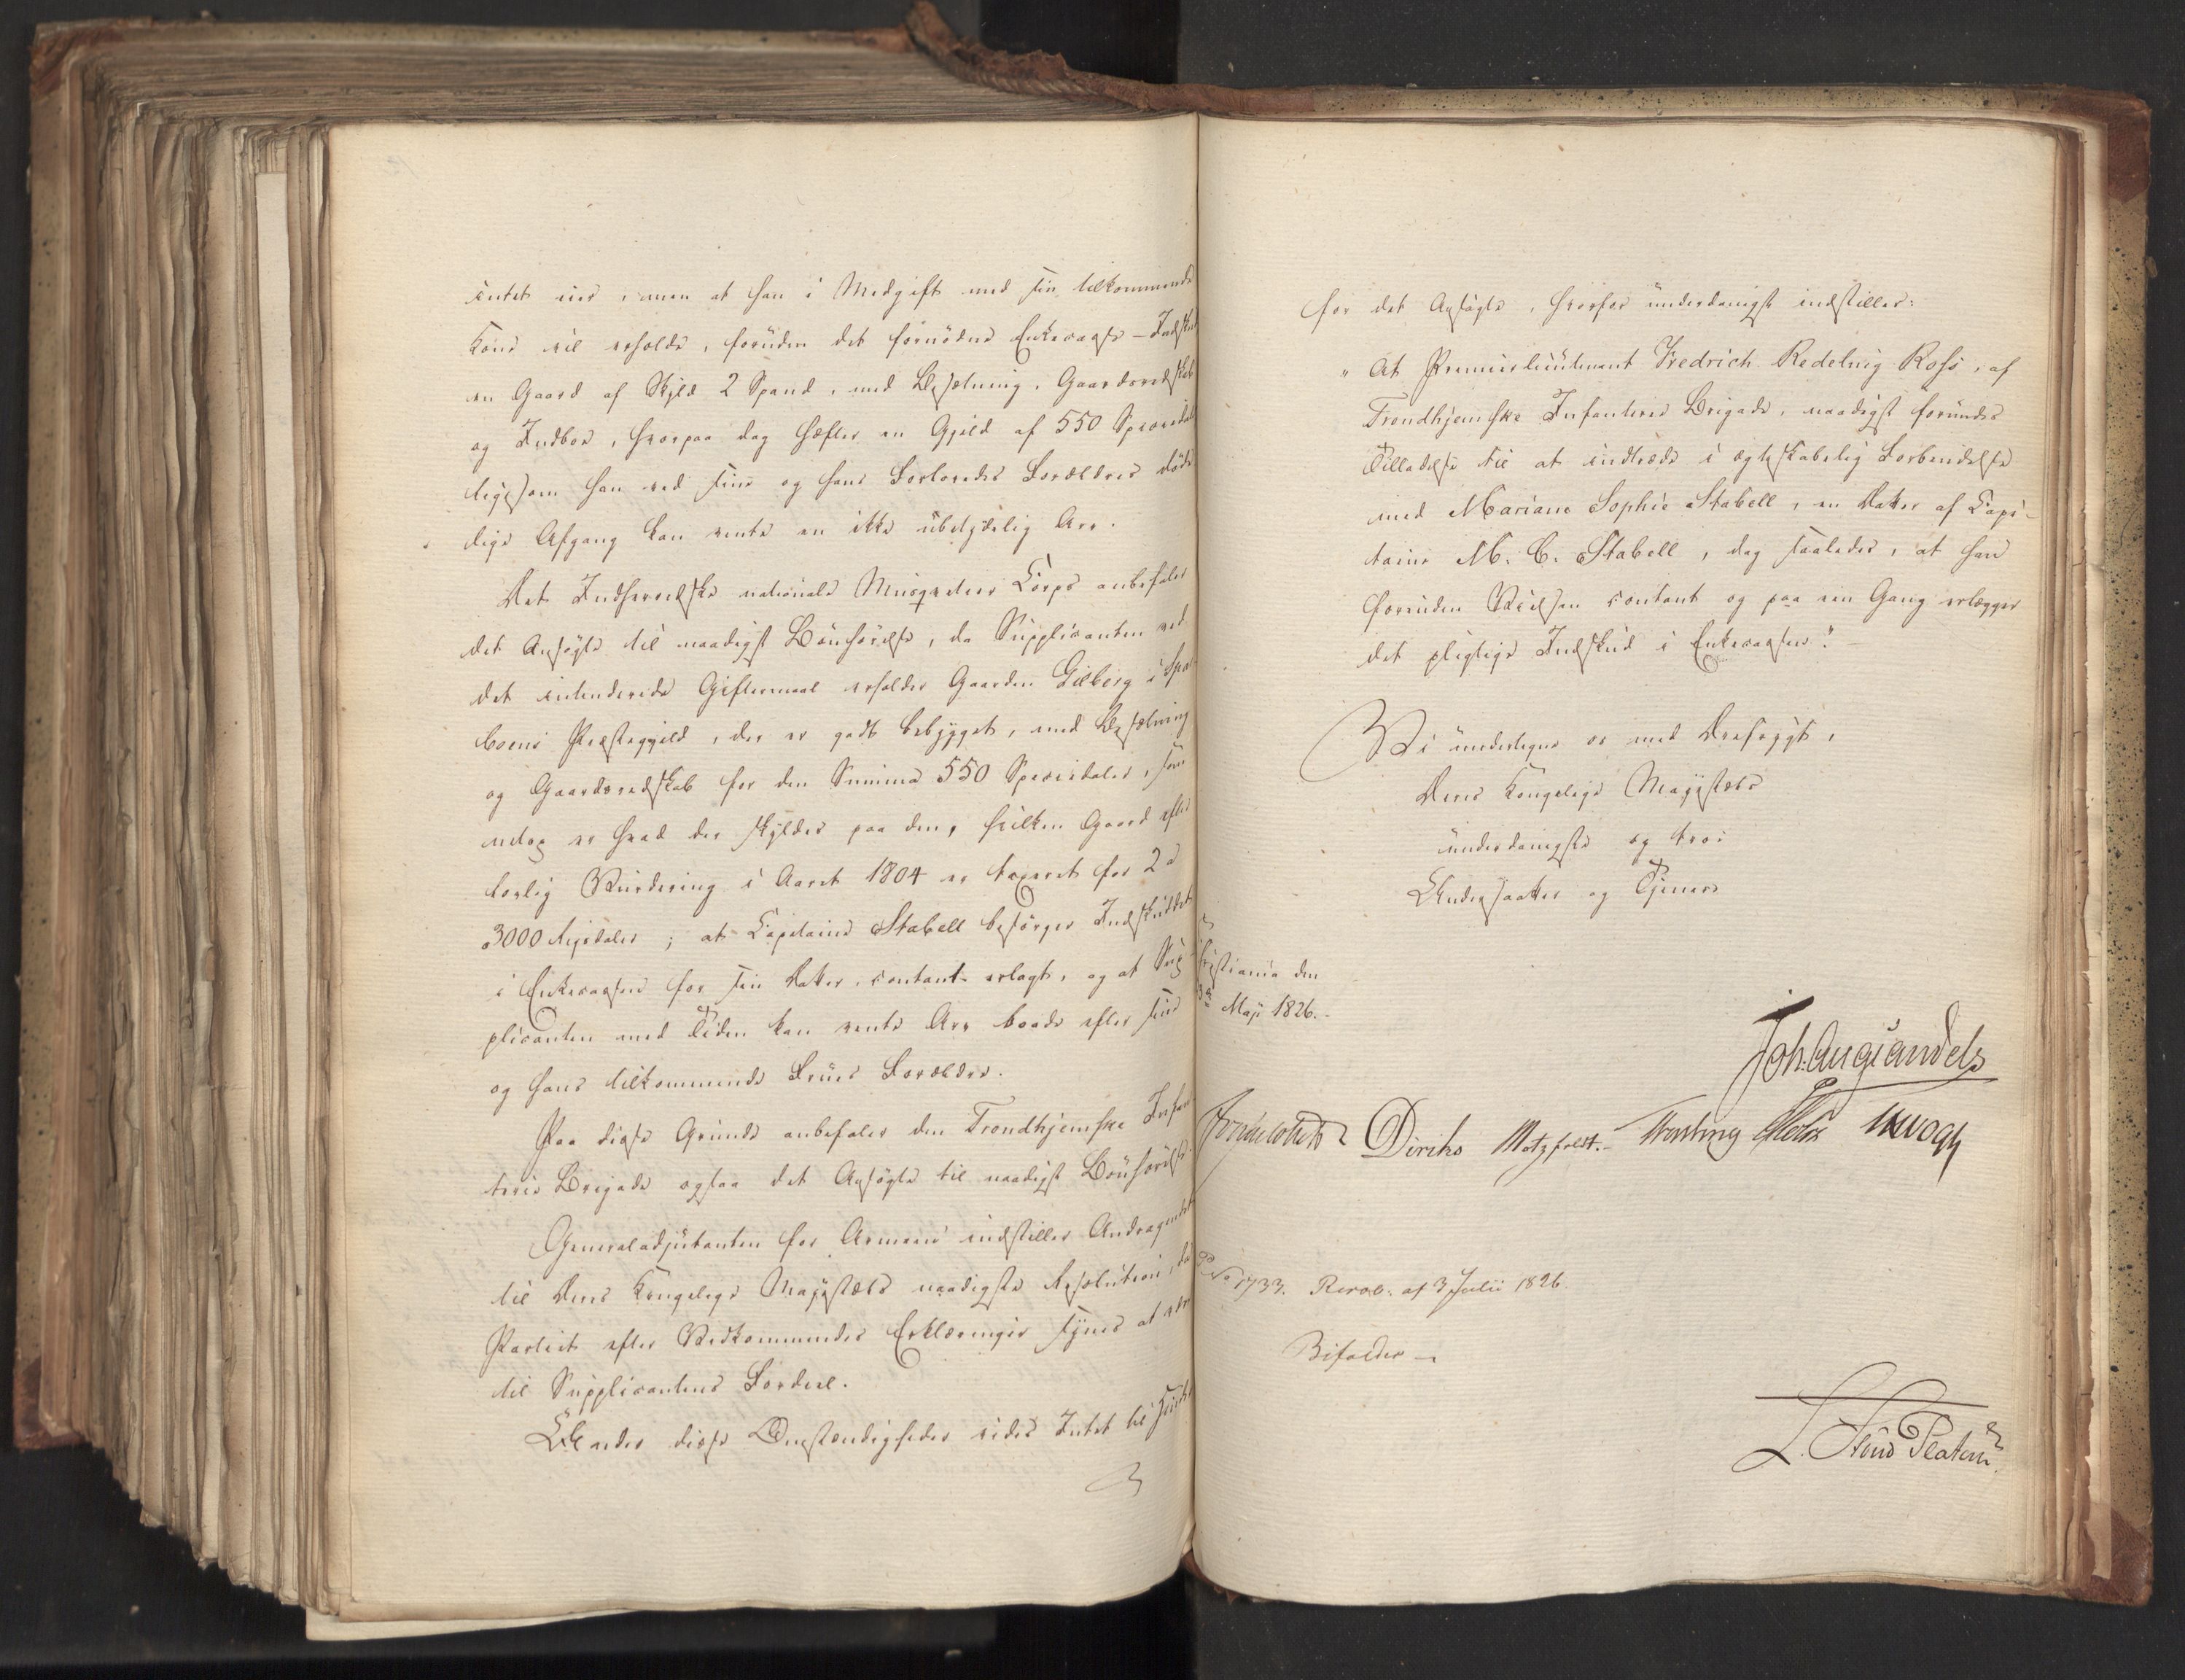 intet eier, men at han i Medgift med sin tilkommende
Kone vil erholde, foruden det fornødne Enkecasse-Indskud
en Gaard af Skyld 2 Spand, med Besætning, Gaardsredskab
og Indboe, hvorpaa dog hæfter en Gjeld af 550 Speciedaler
ligesom han ved sine og hans Forlovedes Forældres døde-
lige Afgang kan vente en ikke ubetydelig Arv.
Det Indherredske nationale Musqueteer Corps anbefaler
det Ansøgte til naadigst Bønhørelse, da Supplicanten ved
det intenderede Giftermaal erholder Gaarden Gilberg i Spar-
boens Præstegjeld, der er godt bebygget, med Besætning
og Gaardsredskab for den Summa 550 Speciedaler, som
netop er hvad der skyldes paa den, hvilken Gaard efter
lovlig Vurdering i Aaret 1804 er taxeret for 2 a
3000 Rigsdaler; at Capitaine Stabell besørger Indskuddet
i Enkecassen for sin Datter, contant erlagt, og at Sup-
plicanten med Tiden kan vente Arv baade efter sine
og hans tilkommende Frues Forældre.
Paa disse Grunde anbefaler den Trondhjemske Infan-
terie Brigade ogsaa det Ansøgte til naadigst Bønhørelse.
Generaladjutanten for Armeen indstiller Andragendet
til Deres Kongelige Majestæts naadigste Resolution, da
Partiet efter Vedkommendes Erklæringer synes at være
til Supplicantens Fordeel.
Under disse Omstændigheder vides Intet til Hinder
for det Ansøgte, hvorfor underdanigst indstilles:
"At Premierlieutenant Fredrich Redelnig Ross, af
Trondhjemske Infanterie Brigade, naadigst forundes
Tilladelse til at indtræde i ægteskabelig Forbindelse
med Mariane Sophie Stabell, en Datter af Capi-
taine M. C. Stabell, dog saaledes, at han
forinden Vielsen contant og paa een Gang erlægger
det pligtige Indskud i Enkecassen".
Vi undertegne os med Dræfrygt,
Deres Kongelige Majestæts
underdanigste og troe
Undersaatter og Tjenere
Christiania den
Maji 1826.
Joh: Aug: Sandels
Diriks Motzfeldt. Treschow Holst Vogt
No 1733. Resol: af 3 Julii 1826.
Bifaldes